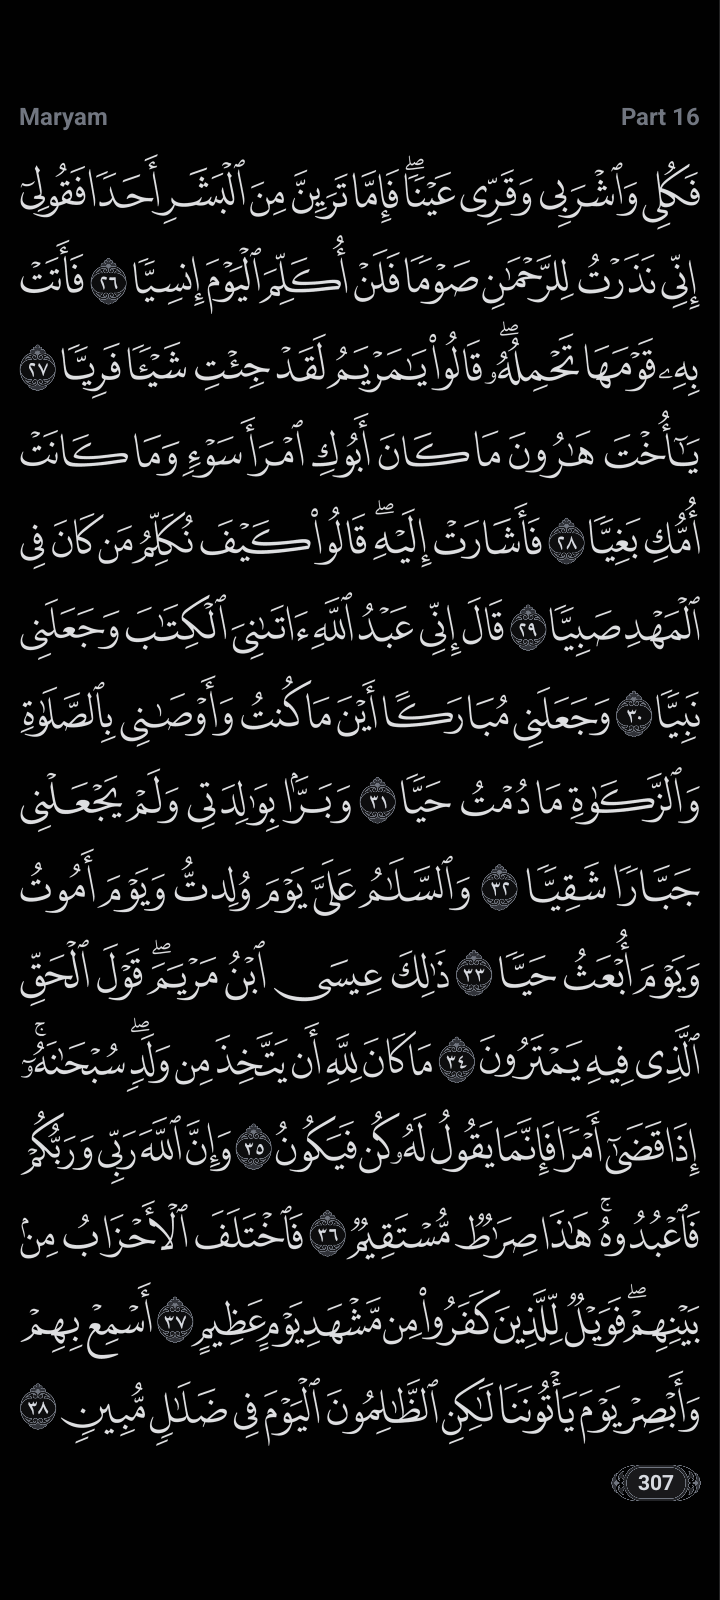 Maryam
Part 16
فَكُلِى وَٱشْرَبِى وَقَرِّى عَيْنًا ۖ فَإِمَّا تَرَيِنَّ مِنَ ٱلْبَشَرِ أَحَدًا فَقُولِىٓ
إِنِّى نَذَرْتُ لِلرَّحْمَـٰنِ صَوْمًا فَلَنْ أُكَلِّمَ ٱلْيَوْمَ إِنسِيًّا ٢٦ فَأَتَتْ
بِهِۦ قَوْمَهَا تَحْمِلُهُۥ ۖ قَالُوا۟ يَـٰمَرْيَمُ لَقَدْ جِئْتِ شَيْـًٔا فَرِيًّا ٢٧
يَـٰٓأُخْتَ هَـٰرُونَ مَا كَانَ أَبُوكِ ٱمْرَأَ سَوْءٍ وَمَا كَانَتْ
أُمُّكِ بَغِيًّا ٢٨ فَأَشَارَتْ إِلَيْهِ ۖ قَالُوا۟ كَيْفَ نُكَلِّمُ مَن كَانَ فِى
ٱلْمَهْدِ صَبِيًّا ٢٩ قَالَ إِنِّى عَبْدُ ٱللَّهِ ءَاتَىٰنِىَ ٱلْكِتَـٰبَ وَجَعَلَنِى
نَبِيًّا ٣٠ وَجَعَلَنِى مُبَارَكًا أَيْنَ مَا كُنتُ وَأَوْصَـٰنِى بِٱلصَّلَوٰةِ
وَٱلزَّكَوٰةِ مَا دُمْتُ حَيًّا ٣١ وَبَرًّۢا بِوَٰلِدَتِى وَلَمْ يَجْعَلْنِى
جَبَّارًا شَقِيًّا ٣٢ وَٱلسَّلَـٰمُ عَلَىَّ يَوْمَ وُلِدتُّ وَيَوْمَ أَمُوتُ
وَيَوْمَ أُبْعَثُ حَيًّا ٣٣ ذَٰلِكَ عِيسَى ٱبْنُ مَرْيَمَ ۖ قَوْلَ ٱلْحَقِّ
ٱلَّذِى فِيهِ يَمْتَرُونَ ٣٤ مَا كَانَ لِلَّهِ أَن يَتَّخِذَ مِن وَلَدٍ ۖ سُبْحَـٰنَهُۥٓ ۚ
إِذَا قَضَىٰٓ أَمْرًا فَإِنَّمَا يَقُولُ لَهُۥ كُن فَيَكُونُ ٣٥ وَإِنَّ ٱللَّهَ رَبِّى وَرَبُّكُمْ
فَٱعْبُدُوهُ ۚ هَـٰذَا صِرَٰطٌ مُّسْتَقِيمٌ ٣٦ فَٱخْتَلَفَ ٱلْأَحْزَابُ مِنۢ
بَيْنِهِمْ ۖ فَوَيْلٌ لِّلَّذِينَ كَفَرُوا۟ مِن مَّشْهَدِ يَوْمٍ عَظِيمٍ ٣٧ أَسْمِعْ بِهِمْ
وَأَبْصِرْ يَوْمَ يَأْتُونَنَا لَـٰكِنِ ٱلظَّـٰلِمُونَ ٱلْيَوْمَ فِى ضَلَـٰلٍ مُّبِينٍ ٣٨
307